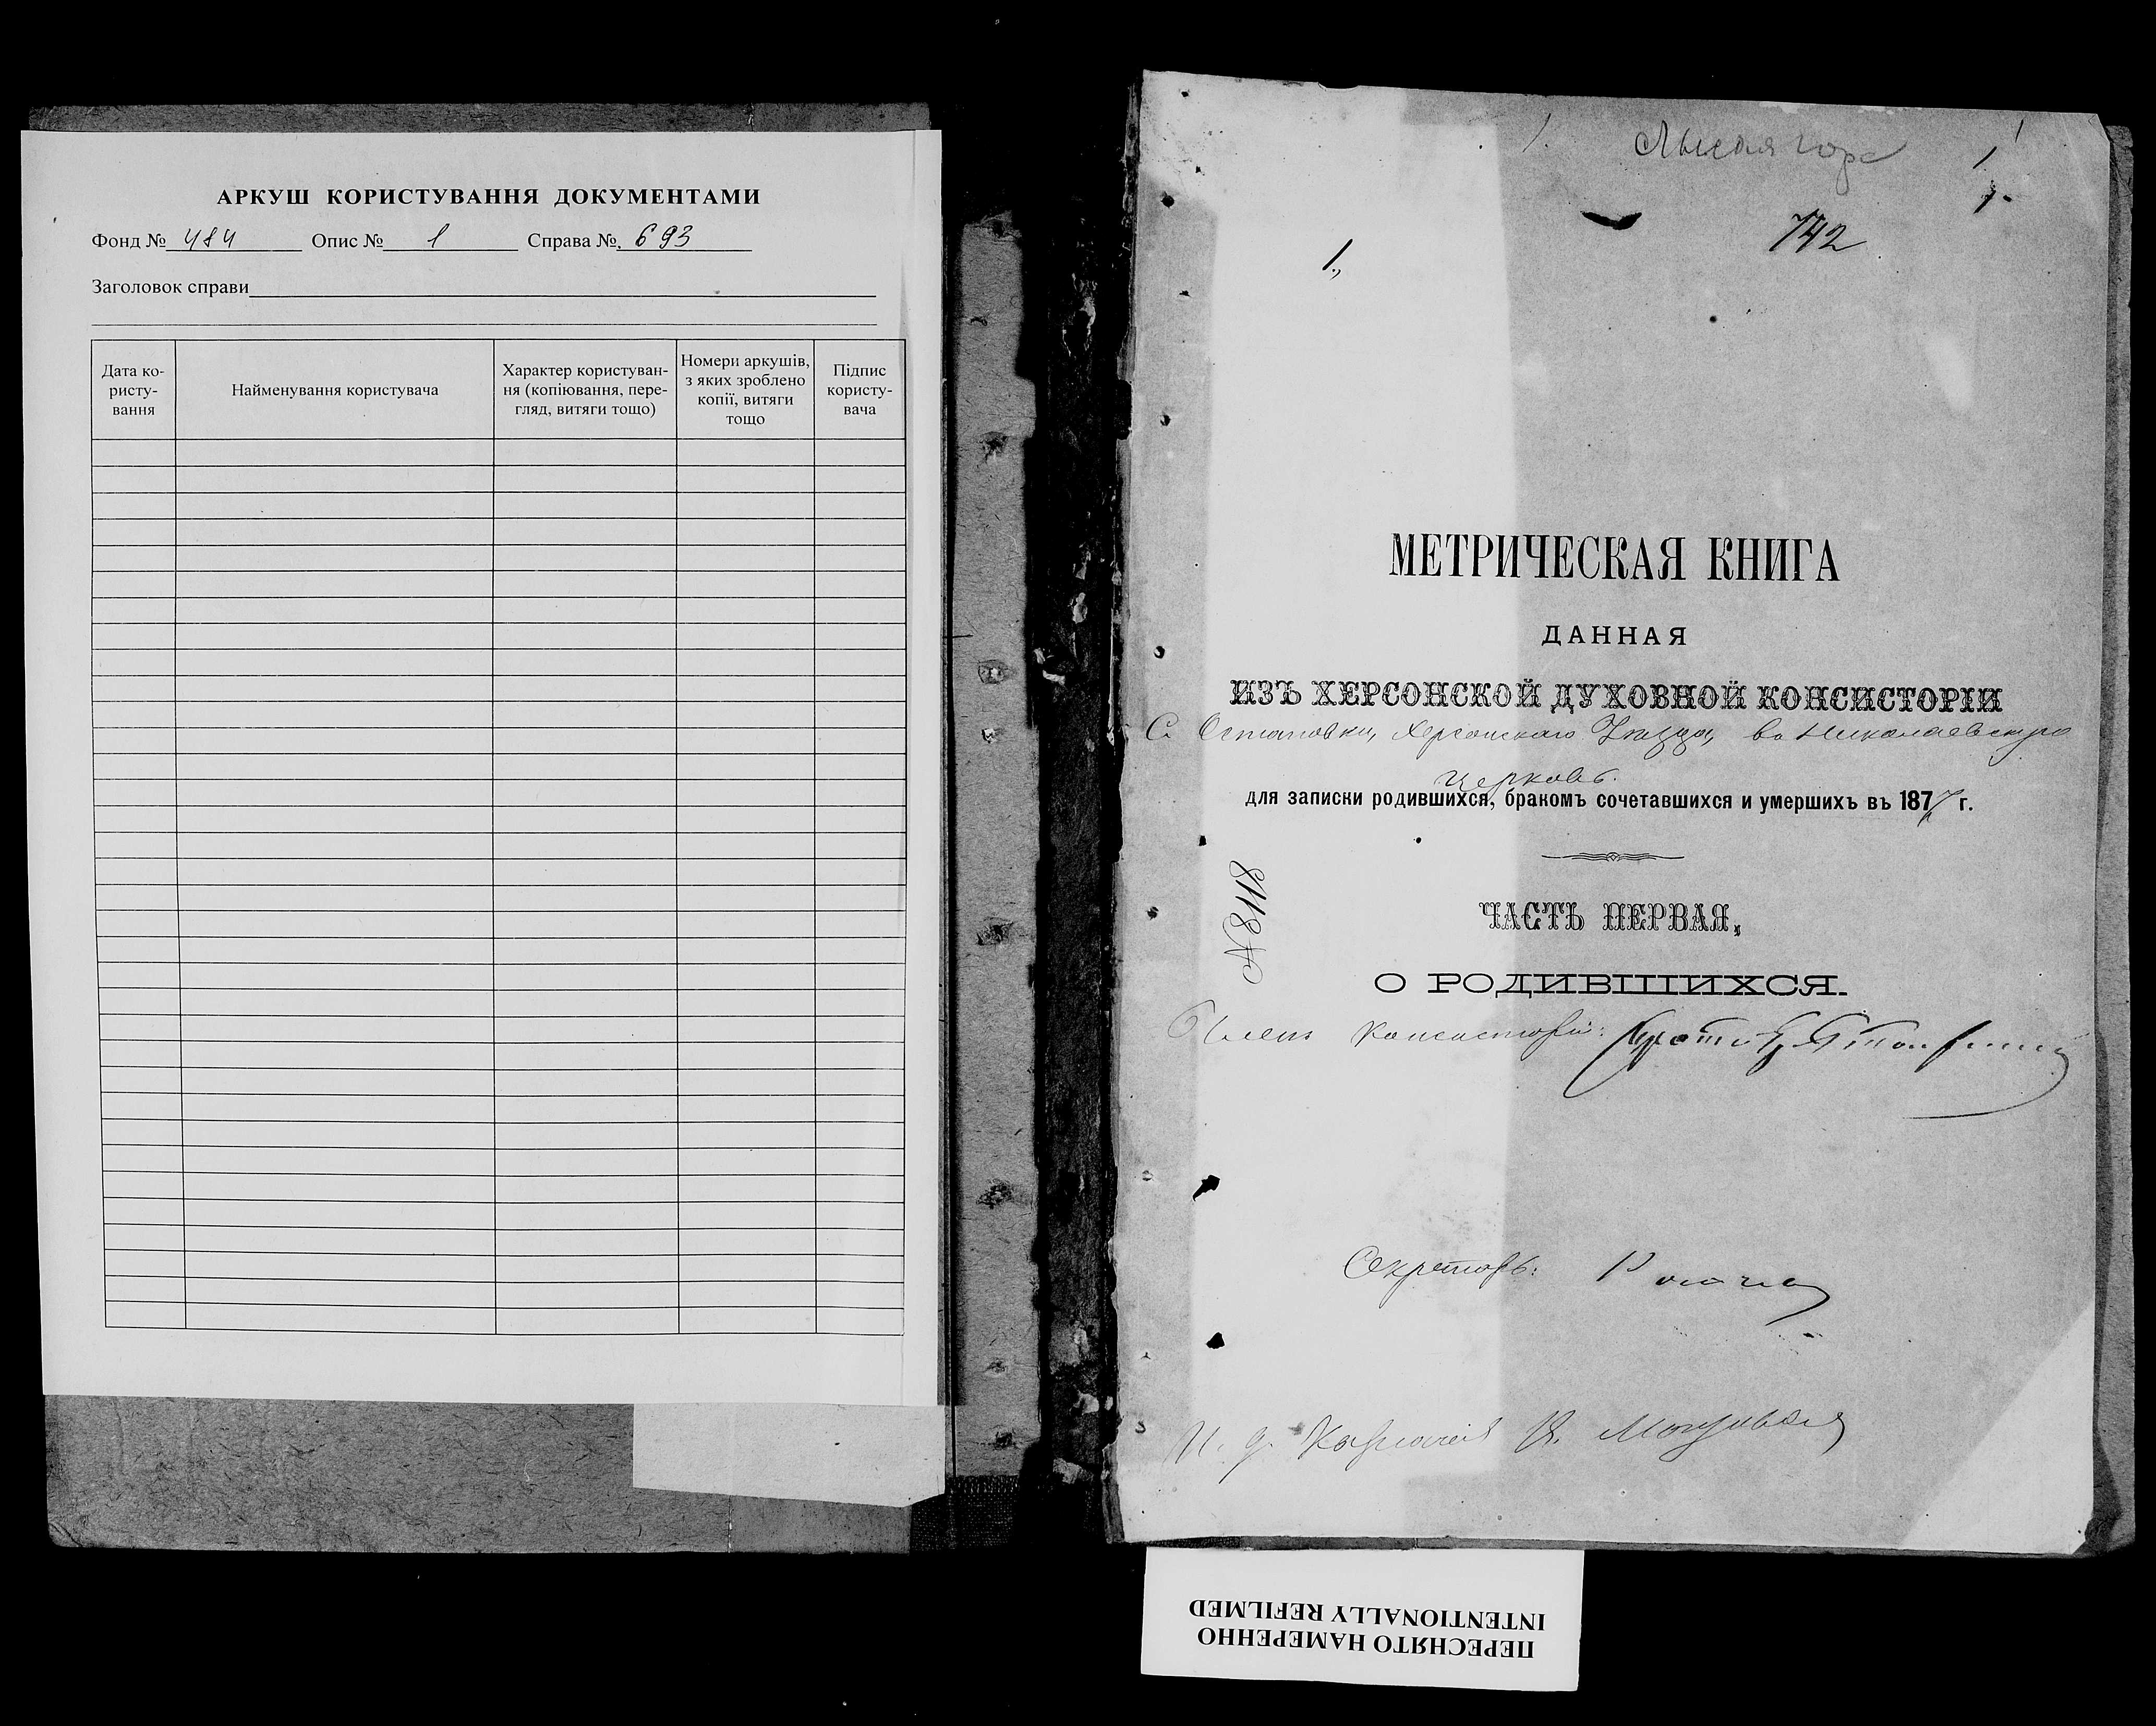 АРКУШ КОРИСТУВАННЯ ДОКУМЕНТАМИ
Фонд № 484 Опис № 1 Справа № 693
Заголовок справи
Дата ко-ристу-вання
Найменування користувача
Характер користуван-ня (копіювання, пере-гляд, витяги тощо)
Номери аркушів, з яких зроблено копії, витяги тощо
Підпис користу-вача
1. Лысая гора 1
1
1.
742
1.,
МЕТРИЧЕСКАЯ КНИГА
ДАННАЯ
ИЗЪ ХЕРСОНСКОЙ ДУХОВНОЙ КОНСИСТОРІИ
С. Остаповки, Херсонскаго Уѣзда, въ Николаевскую
церковь.
для записки родившихся, бракомъ сочетавшихся и умершихъ въ 1877 г.
№ 3118
ЧАСТЬ ПЕРВАЯ,
О РОДИВШИХСЯ.
Членъ Консисторіи:
Секретарь:
И. д. Казначея
ПЕРЕСНЯТО НАМЕРЕННО
INTENTIONALLY REFILMED